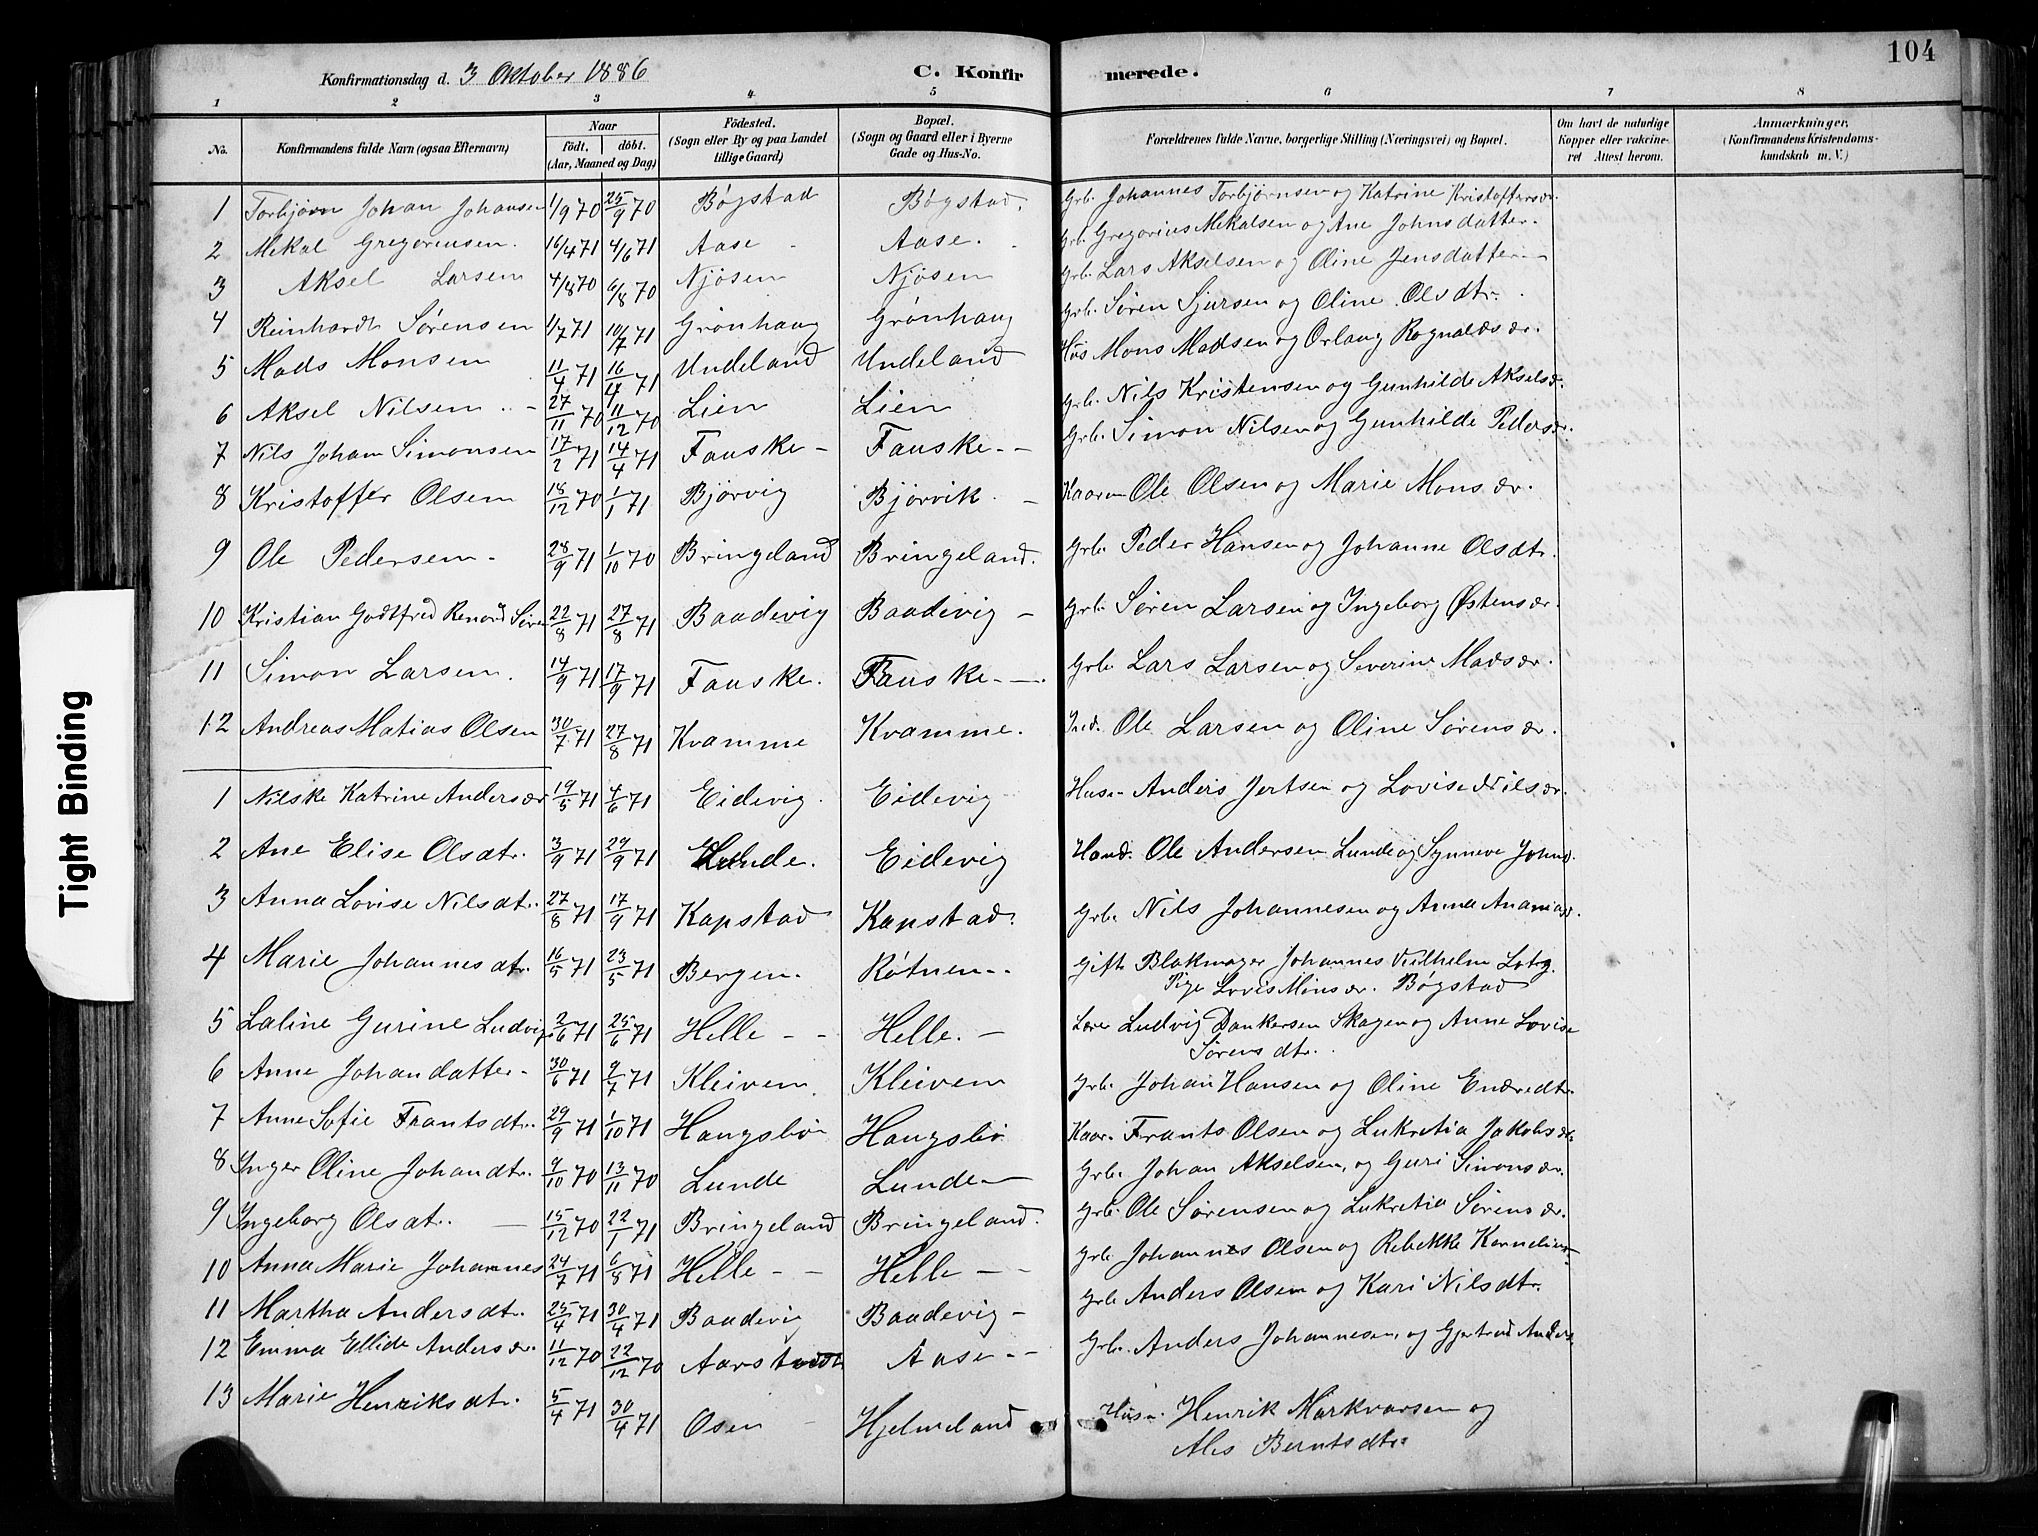 104
Konfirmationsdag d. 3 Oktober 1886 C. Konfirmerede.
1 2 3 4 5 6 7 8
No. Konfirmandens fulde Navn (ogsaa Efternavn) Naar födt. döbt. (Aar, Maaned og Dag) Födested. (Sogn eller By og paa Landet tillige Gaard) Bopæl. (Sogn og Gaard eller i Byerne Gade og Hus-No. Forældrenes fulde Navne, borgerlige Stilling (Næringsvei) og Bopæl. Om havt de naturlige Kopper eller vakcineret Attest herom. Anmærkninger, (Konfirmandens Kristendomskundskab m. V.)
1 Torbjørn Johan Johansen 1/9 70 25/9 70 Bøgstad Bøgstad. Grb. Johannes Torbjørnsen og Katrine Kristoffersdr.
2 Mekal Gregoriussen. 16/4 71 4/6 71 Aase Aase. Grb. Gregorius Mekalsen og Ane Johnsdatter
3 Aksel Larsen 4/8 70 6/8 70 Njøsen Njøsen Grb. Lars Akselsen og Oline Jensdatter
4 Reinhardt Sørensen 1/7 71 10/7 71 Grönhaug Grønhaug Grb. Søren Sjursen og Oline Olsdtr.
5 Mads Monsen 11/4 71 16/4 71 Undeland Undeland Hus Mons Madsen og Orlaug Rognaldsdr.
6 Aksel Nilsen 27/11 70 11/12 70 Lien Lien Grb. Nils Kristensen og Gunhilde Akselsd.
7 Nils Johan Simonsen 17/2 71 14/4 71 Fauske Fauske Grb. Simon Nilsen og Gunhilde Pedersdr.
8 Kristoffer Olsen 18/12 70 1/1 71 Bjørvig Bjørvik Kaarm Ole Olsen og Marie Monsdr.
9 Ole Pedersen 28/9 71 1/10 70 Bringeland Bringeland. Grb. Peder Hansen og Johanne Olsdtr.
10 Kristian Godtfred Renord Søren 22/8 71 27/8 71 Baadevig Baadevig Grb. Søren Larsen og Ingeborg Østensdr.
11 Simon Larsen. 14/9 71 17/9 71 Fauske. Fauske. Grb. Lars Larsen og Severine Madsdr.
12 Andreas Matias Olsen 30/7 71 27/8 71 Kvamme Kvamme. Ind. Ole Larsen og Oline Sørensdr.
1 Nilske Katrine Andersdr 19/5 71 4/6 71 Eidevig. Eidevig Husm Anders Jertsen og Lovise Nilsdr.
2 Ane Elise Olsdtr. 3/9 71 24/9 71 Lunde. Eidevig Hand. Ole Andersen Lunde og Synneve Johnsd.
3 Anna Lovise Nilsdtr. 27/8 71 17/9 71 Kapstad Kapstad. Grb. Nils Johannesen og Anna Ananiasd.
4 Marie Johannesdtr. 16/5 71 23/5 71 Bergen. Røtnen Gift Blokmager Johannes Vilhelm Lotz
Pige Lovis Monsdr. Bøgstad
5 Laline Gurine Ludvigs 2/6 71 25/6 71 Helle Helle. Lærer Ludvig Dankersen Skagen og Anne Lovise
Sørensdtr.
6 Anne Johandatter 30/6 71 9/7 71 Kleiven Kleiven Grb. Johan Hansen og Oline Endredtr
7 Anne Sofie Frantsdtr. 29/9 71 1/10 71 Haugsbö Haugsbö Kaar. Frants Olsen og Lukretia Jakobsdr.
8 Inger Oline Johandtr. 9/10 70 13/11 70 Lunde Lunde Grb. Johan Akselsen, og Guri Simonsdr.
9 Ingeborg Olsdtr. 15/12 70 22/1 71 Bringeland Bringeland. Grb. Ole Sørensen og Lukretia Sørensdr.
10 Anna Marie Johannes 24/7 71 6/8 71 Helle Helle Grb. Johannes Olsen og Rebekke Kornelius
11 Martha Andersdtr. 25/4 71 30/4 71 Baadevig Baadevig Grb. Anders Olsen og Kari Nilsdtr.
12 Emma Ellide Andersdr. 11/12 70 22/12 70 Aase Grb. Anders Johannesen, og Gjertrud Anders
13 Marie Henriksdtr. 5/4 71 30/4 71 Osen Hjelmeland Husm. Henrik Markvorsen og
Berntsdtr.
Tight Binding